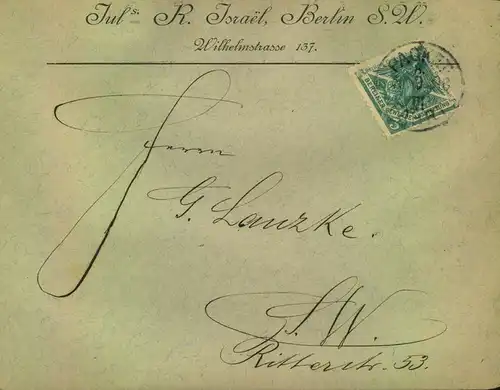 Juls. R. Israël, Berlin S.W.
Wilhelmstrasse 137.
Herrn
G. Lanzke.
S. W.
Ritterstr. 53.